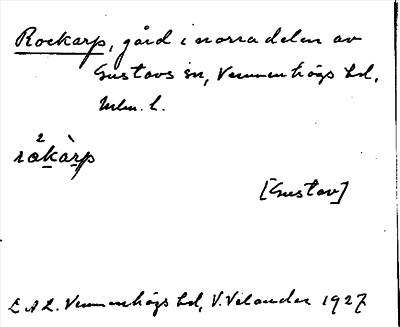 Rockarp, gård i norra delen av
Gustavs sn, Vemmenhögs hd,
Mlm. l.
råkàrp
[Gustav]
L A L. Vemmenhögs hd, V. Velander 1927